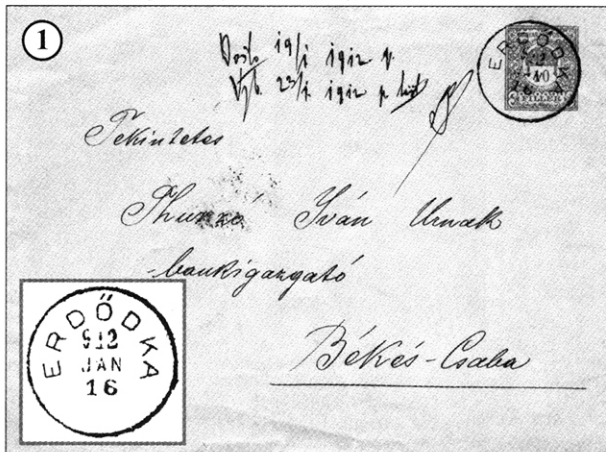 1
Došlo 19/I 1912 p.
Vyb. 23/I. 1912 p.
ERDŐDKA
16
FILLÉR
Tekintetes
Thurzó Iván Urnak
bankigazgató
Békés-Csaba
ERDŐDKA
912
JAN
16